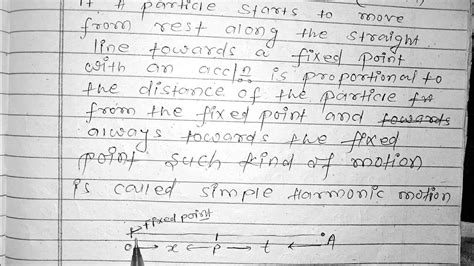 If A particle starts to move
from rest along the straight
line towards a fixed point
with an accln is proportional to
the distance of the particle fr
from the fixed point and towards
always towards the fixed
point such kind of motion
is called simple Harmonic motion
fixed point
O x P t A